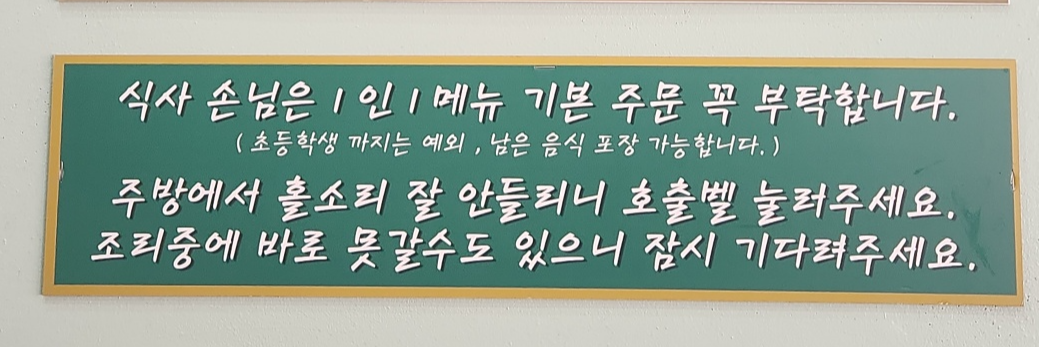 식사 손님은 1인 1메뉴 기본 주문 꼭 부탁합니다.
(초등학생 까지는 예외, 남은 음식 포장 가능합니다.)
주방에서 홀소리 잘 안들리니 호출벨 눌러주세요.
조리중에 바로 못갈수도 있으니 잠시 기다려주세요.